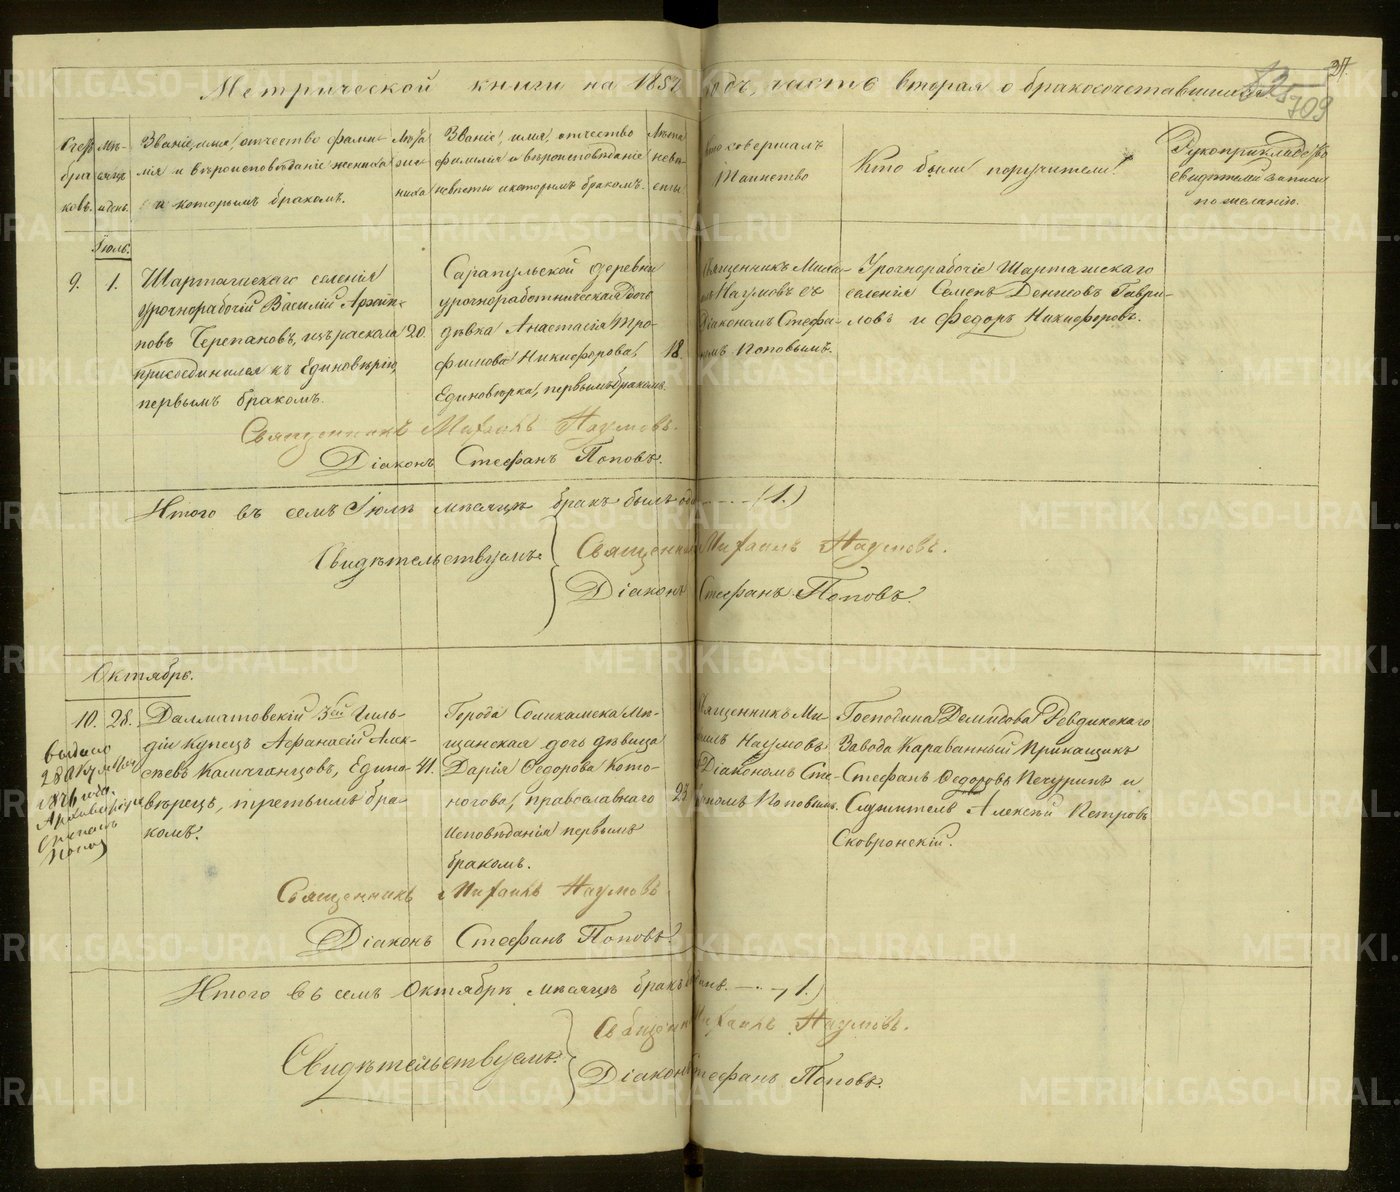 34.
709
Метрической книги на 1857 годъ, часть вторая о бракосочетавшихся
Счетъ браковъ.
Мѣсяцъ и день.
Званіе, имя, отчество фами-
лія и вѣроисповѣданіе жениха
и которымъ бракомъ.
Лѣта
же-
ниха
Званіе, имя, отчество
фамилія и вѣроисповѣданіе
невѣсты и которымъ бракомъ.
Лѣта
невѣ-
сты.
Кто совершалъ
Таинство
Кто были поручители?
Рукоприкладство
свидѣтелей записи
по желанію.
Іюль.
9. 1.
Шарташскаго селенія
урочнорабочій Василій
Черепановъ, изъ раскола
присоединился къ Единовѣрію,
первымъ бракомъ.
20.
Сарапульской деревни
урочноработническая дочь
дѣвка Анастасія Тро-
фимова Никифорова,
Единовѣрка, первымъ бракомъ.
18.
Священникъ Миха-
илъ Наумовъ съ
Діакономъ Стефа-
номъ Поповымъ.
Урочнорабочіе Шарташскаго
селенія Семенъ Денисовъ Гаври-
ловъ и Федоръ Никифоровъ.
Священникъ Михаилъ Наумовъ.
Діаконъ Стефанъ Поповъ.
Итого въ семъ Іюлѣ мѣсяцѣ бракъ былъ одинъ (1.)
Свидѣтельствуемъ:
Священникъ Михаилъ Наумовъ.
Діаконъ Стефанъ Поповъ.
Октябрь.
10. 28.
Далматовскій 3ей Гиль-
діи Купецъ Афанасій Алек-
сѣевъ Камчаганцовъ, Едино-
вѣрецъ, третьимъ бра-
комъ.
41.
Города Соликамска Мѣ-
щанская дочь дѣвица
Дарія Ѳедорова Кото-
ногова, православнаго
Исповѣданія первымъ
бракомъ.
23.
Священникъ Ми-
хаилъ Наумовъ
съ Діакономъ Сте-
фаномъ Поповымъ.
Господина Демидова Ревдинскаго
Завода Караванный Прикащикъ
Стефанъ Ѳедоровъ Печуринъ и
Служитель Алексѣй Петровъ
Сковронскій.
выдано
1876 года.
Священникъ Михаилъ Наумовъ
Діаконъ Стефанъ Поповъ.
Итого въ семъ Октябрѣ мѣсяцѣ бракъ одинъ. 1.)
Свидѣтельствуемъ:
Священникъ Михаилъ Наумовъ.
Діаконъ Стефанъ Поповъ.
METRIKI.GASO-URAL.RU